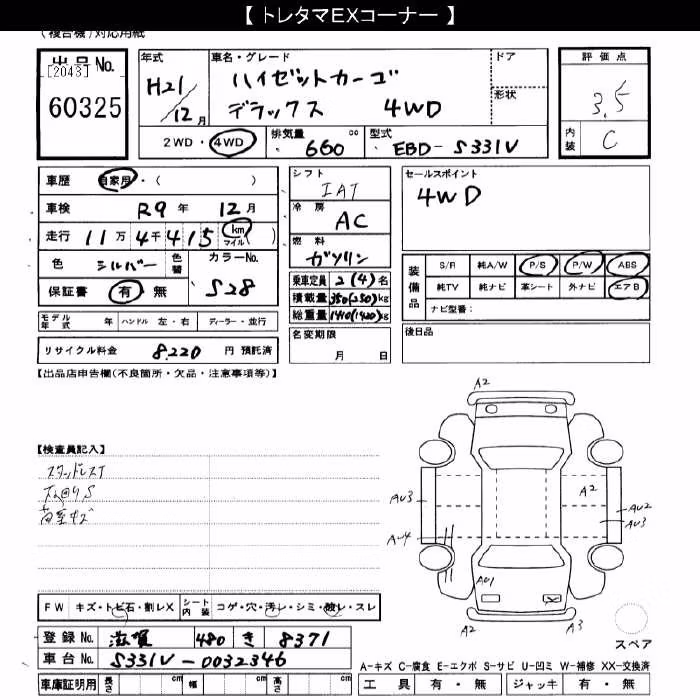 【 トレタマEXコーナー 】
(複合機)対応用紙
出品 No.
[2043]
60325
年式
H21/12月
車名・グレード
ハイゼットカーゴ
デラックス 4WD
ドア
形状
2WD・4WD
排気量 660 cc
型式 EBD-S331V
評価点
3.5
内装 C
車歴 自家用・( )
車検 R9年 12月
走行 11万4千415 km マイル( )
色 シルバー
色替
カラーNo.
S28
保証書 有・無
シフト
IAT
冷房
AC
燃料
ガソリン
乗車定員 2(4)名
積載量 350(250)kg
総重量 1410(1420)kg
名変期限
月 日
セールスポイント
4WD
装備品
S/R 純A/W P/S P/W ABS
純TV 純ナビ 革シート 外ナビ エアB
ナビ型番:
後日品
モデル年式 年 ハンドル 左・右 ディーラー・並行
リサイクル料金 8,220 円 預託済
【出品店申告欄(不良箇所・欠品・注意事項等)】
【検査員記入】
スタッドレスT
キズ
A2
AU3
A-4
A2
AU2
AU3
AU1
A2
A3
スペア
FW キズ・トビ石・割レX
シート内装 コゲ・穴・汚レ・シミ・破レ・スレ
登録 No. 滋賀 480 き 8371
車台 No. S331V-0032346
車庫証明用 長さ cm 幅 cm 高さ cm
A-キズ C-腐食 E-エクボ S-サビ U-凹ミ W-補修 XX-交換済
工具 有・無 ジャッキ 有・無